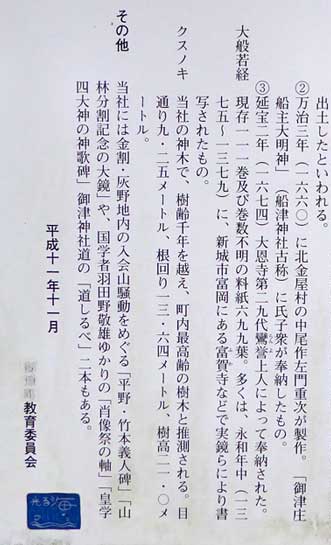 出土したといわれる。
②万治三年（一六六〇）に北金屋村の中尾作左門重次が製作。「御津庄
船主大明神」（船津神社古称）に氏子衆が奉納したもの。
③延宝二年（一六七四）大恩寺第二九代鸞誉上人によって奉納された。
大般若経　現存一一一巻及び巻数不明の料紙六九九葉。多くは、永和年中（一三
七五〜一三七九）に、新城市富岡にある富賀寺などで実鏡らにより書
写されたもの。
クスノキ　当社の神木で、樹齢千年を越え、町内最高齢の樹木と推測される。目
通り九・二五メートル、根回り一三・六四メートル、樹高二一・〇メ
ートル。
その他　当社には金割・灰野地内の入会山騒動をめぐる「平野・竹本義人碑」「山
林分割記念の大鏡」や、国学者羽田野敬雄ゆかりの「肖像祭の軸」「皇学
四大神の神歌碑」御津神社道の「道しるべ」二本もある。
平成十一年十一月
教育委員会